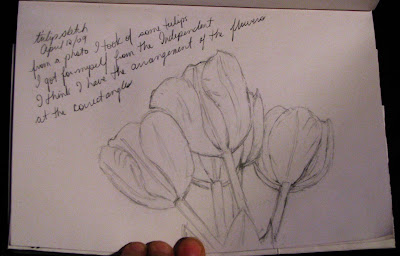 tulip sketch
April 12/09
from a photo I took of some tulips
I got for myself from the Independent
I think I have the arrangement of the flowers
at the correct angles